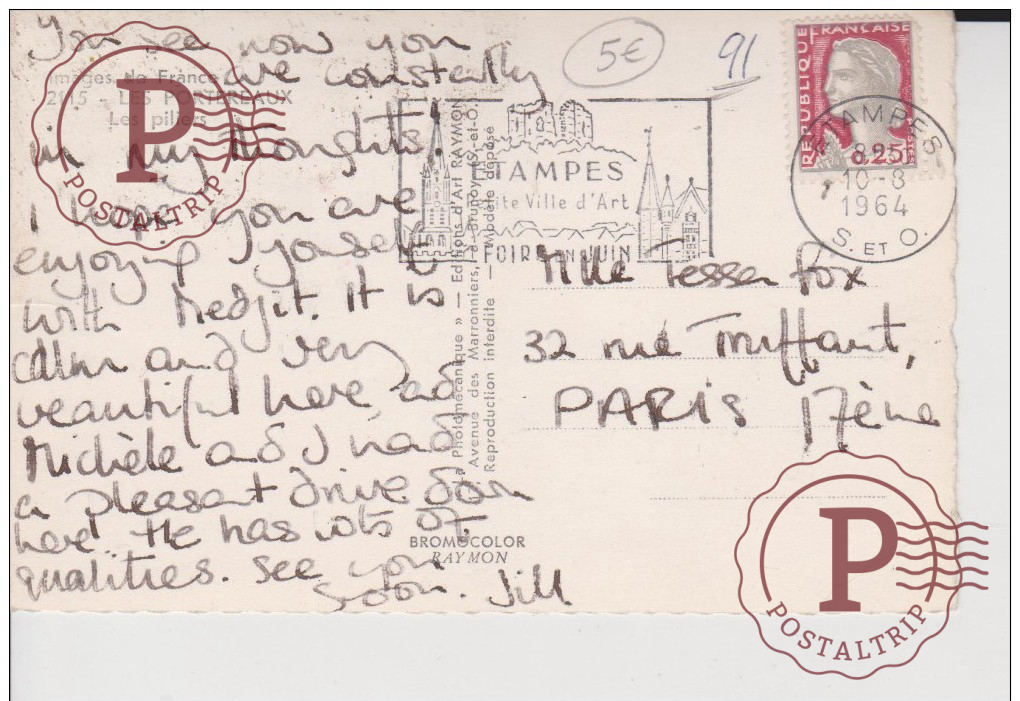 You see now you
are constantly
in my thoughts!
I hope you are
enjoying yourself
with Medjit. It is
calm and very
beautiful here ad
Michèle ad I had
a pleasant drive down
here. He has lots of
qualities. See you
soon. Jill
Images de France
2115 - LES PORTEREAUX
Les piliers
« La Photomécanique » — Editions d'Art RAYMON
Avenue des Marronniers, à Brunoy (S.-et-O.)
Reproduction interdite — Modèle déposé
BROMOCOLOR
RAYMON
5€
91
ETAMPES
Petite Ville d'Art
FOIRE EN JUIN
REPUBLIQUE FRANÇAISE
0,25
ETAMPES
10-8
1964
S. ET O.
Mlle Tessa Fox
32 rue Truffaut,
PARIS 17ème
P
POSTALTRIP
P
POSTALTRIP